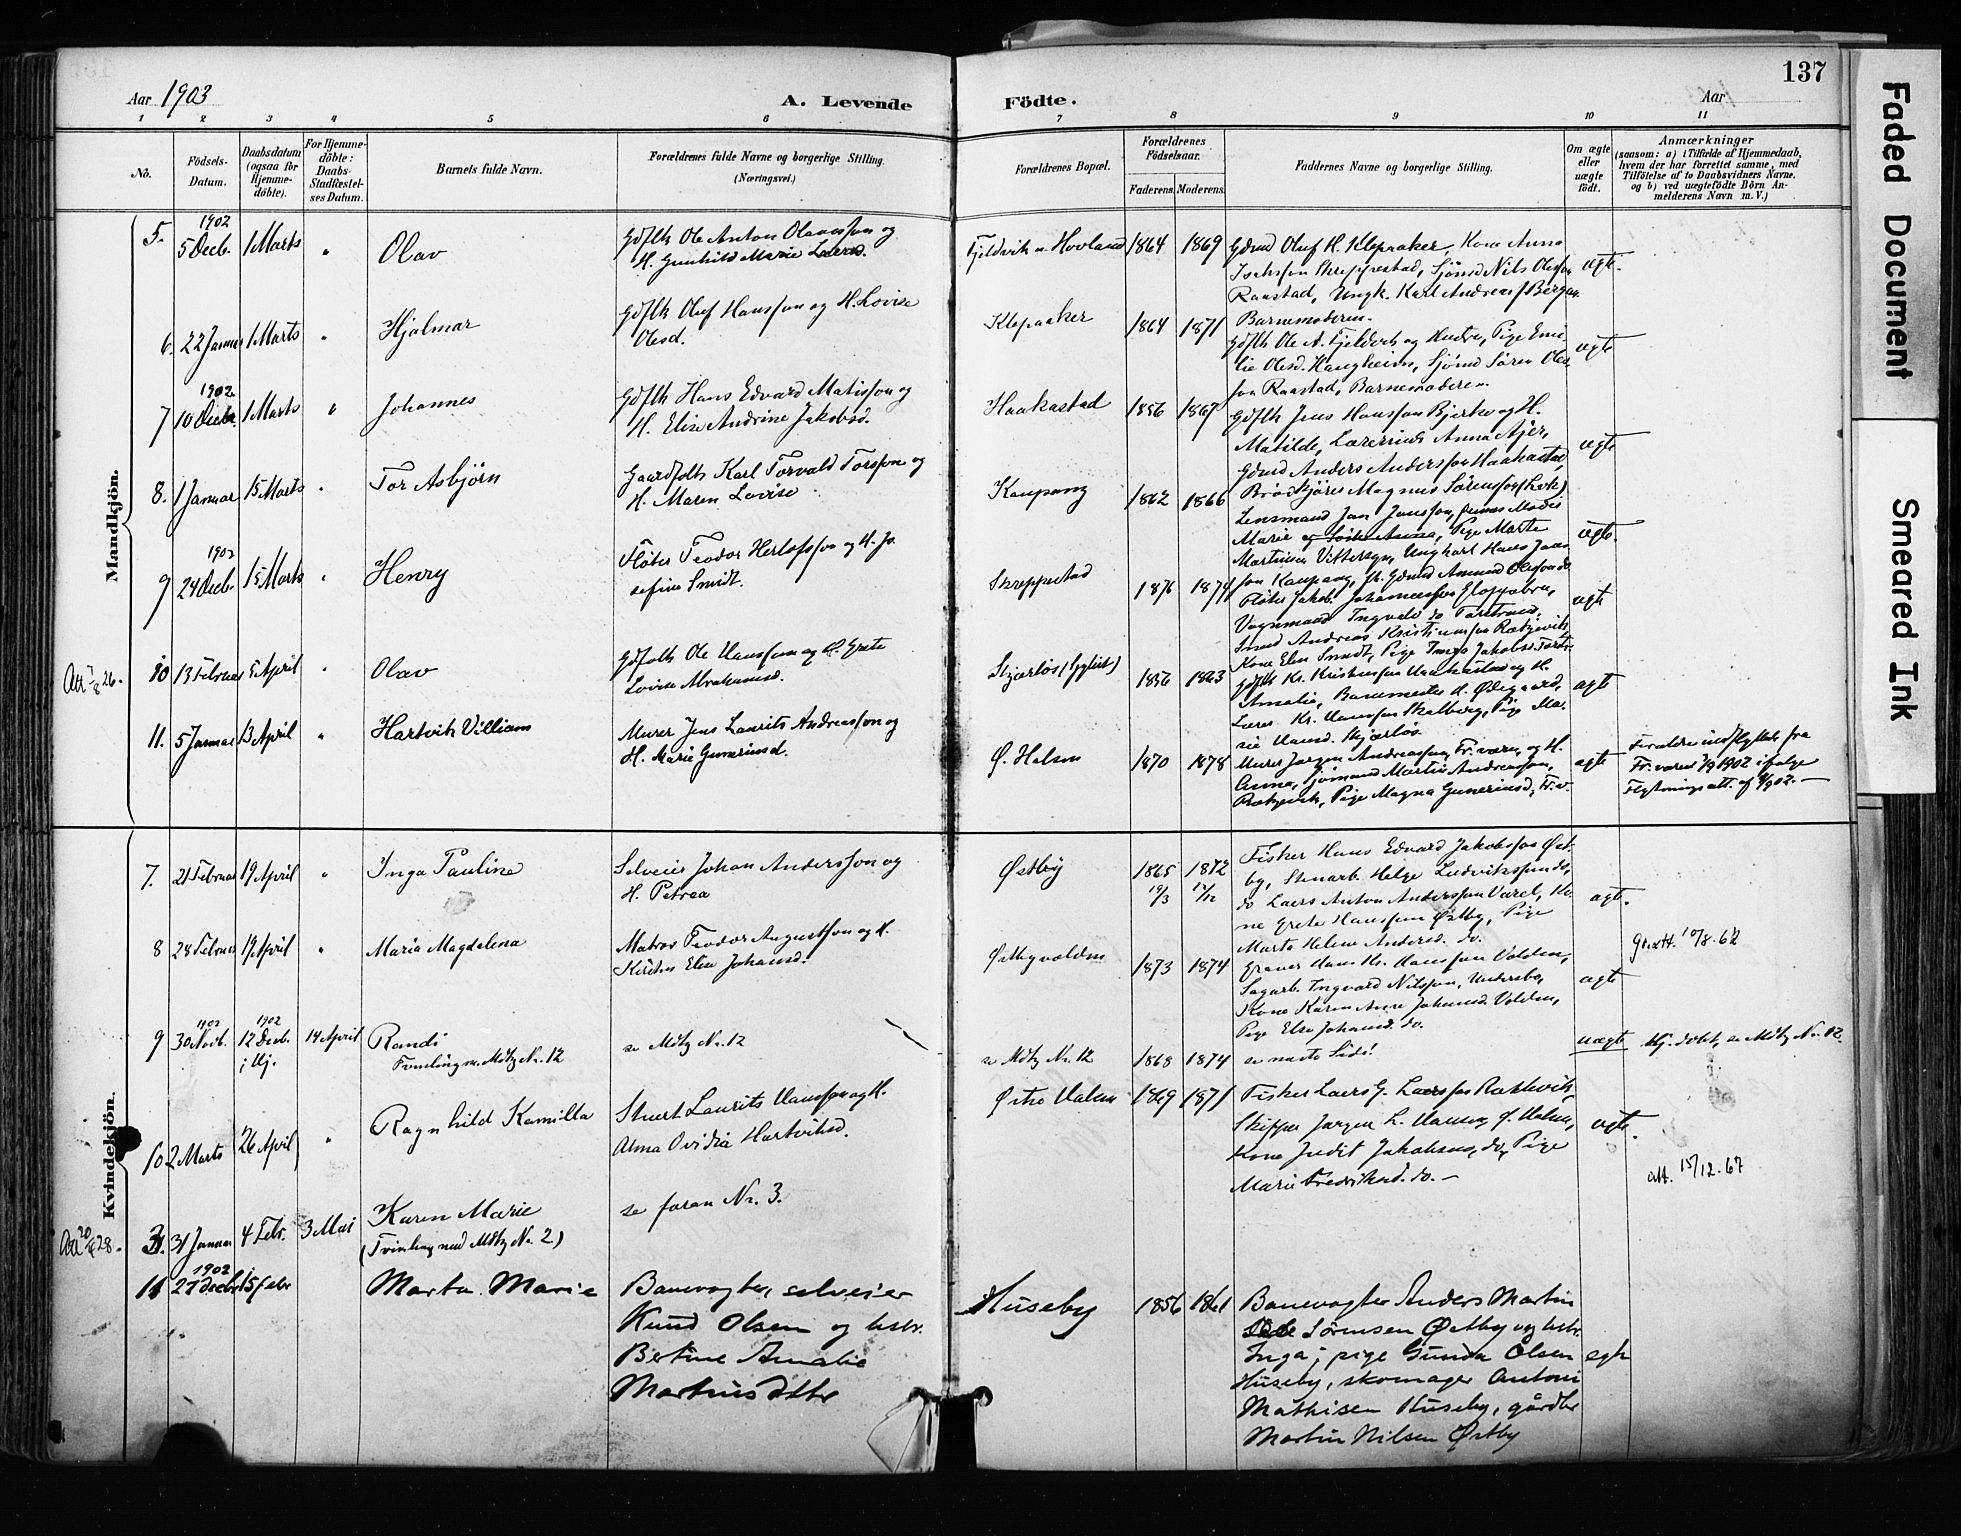 137
Aar 1903
A. Levende
Födte.
Aar
1 2 3 4 5 6 7 8 9 10 11
No.
Födsels-Datum.
Daabsdatum (ogsaa for Hjemmedöbte).
For Hjemmedöbte: Daabs-Stadfæstelses Datum.
Barnets fulde Navn.
Forældrenes fulde Navne og borgerlige Stilling.
(Næringsvei.)
Forældrenes Bopæl.
Forældrenes Födselsaar.
Faderens. Moderens.
Faddernes Navne og borgerlige Stilling.
Om ægte eller uægte födt.
Anmærkninger
(saasom: a) i Tilfælde af Hjemmedaab,
hvem der har forrettet samme, med
Tilföielse af to Daabsvidners Navne,
og b) ved uægtefödte Börn Anmelderens Navn m. V.)
Mandkjön.
5. 1902 5 Decb. 1 Marts " Olav
Gdfslk Ole Anton Olavsson og
H. Gunhild Marie Laersd.
Fjeldvik u. Hovland 1864 1869
Gdmd Oluf H. Klepaaker, Kone Anna
Skreppestad, Sjömd Nils Olesson
Raastad, Ungk. Karl Andreas Bergan
Barnemoderen.
ægte.
6. 22 Januar 1 Marts " Hjalmar
Gdfslk Oluf Hansson og H. Lovise
Olesd.
Klepaaker 1864 1871
Gdfslk Ole A. Fjeldvik og Hustru, Pige Emilie
Olesd. Haugheim, Sjömd Sören Olesson
Raastad, Barnemoderen.
ægte
7 1902 10 Decbr 1 Marts " Johannes
Gdfslk Hans Edvard Matisson og
H. Elise Andrine Jakobsd.
Haakastad 1856 1867
Gdfslk Jens Hansson Bjerke og H.
Matilde, Lærerinde Anna Ajer,
Gdmd Anders Andersson Haakastad,
ægte
8. 1 Januar 15 Marts " Tor Asbjörn
Gaardfolk Karl Torvald Torsson og
H. Maren Lovise
Kaupang 1862 1866
Brödkjörer Magnus Sörensson
Lensmand Jan Jansson,
Marie Pige Marte
Martinsen Vittersyn, Ungkarl Hans Jansson
Kaupang, Gdmd Amund Olesson do
ægte.
9 1902 24 Decb. 15 Marts " Henry
Fløter Teodor Herlofsson og H. Josefine
Smidt.
Skreppestad 1876 1874
Fløter Jakob Johannesson Gloppebra,
Vognmand Ingvald do
Smed Andreas Kristiansson Rækjevik,
Kone Elen Smidt, Pige Jakobsd.
ægte
Att 26.
10 13 Februar 5 April " Olav
Gdfolk Ole Hansson og H. Grete
Lovise Abrahamsd.
Skjærløs 1856 1863
Gdfslk Kr. Kristensson Haakastad og H.
Amalie, Banemester H. Ødegaard,
Lærer Kr. Hansson Skalberg, Pige Marie
Hansd. Skjærløs.
ægte
11. 5 Januar 13 April " Hartvik Villiam
Murer Jens Laurits Andreasson og
H. Marie Gunerinsd.
Ø. Halsen 1870 1878
Murer Jørgen Andreasson, Fr.værn, og H.
Anna, Sjömand Martin Andreasson,
Rækjevik, Pige Magna Gunerinsd., Fr.v.
ægte
Forældre indflyttet fra
Fr.værn 1/9 1902 ifølge
Flytningsatt. af 902.
Kvindekjön.
7. 21 Februar 19 April " Inga Pauline
Selveier Johan Andersson og
H. Petrea
Østby 1865 19/3 1872 12/12
Fisker Hans Edvard Jakobsson Østby,
Stenarb. Helge Ludviksson do,
do Laers Anton Andersson Varel, Kone
Grete Hansson Østby, Pige
Marte Helene Andersd. do.
ægte.
8 28 Februar 19 April " Maria Magdalena
Matros Teodor Augustson og H.
Elise Johansd.
Østbyvolden 1873 1874
Graver Hans Kr. Hansson Volden,
Sagarb. Ingvard Nilsson, Undersbo,
Kone Karen Anne Johansd. Volden,
Pige Else Johansd. do.
ægte
Gr.att. 10/8. 62
9 1902 30 Novb. 1902 12 Decb. i Hj. 14 April Randi
Tvilling m. Mdkj Nr. 12
se Mdkj Nr. 12
se Mdkj Nr. 12 1868 1874
se næste Side!
uægte
Hj. döbt, se Mdkj Nr. 12.
10 2 Marts 26 April " Ragnhild Kamilla
Stuert Laurits Hansson og H.
Alma Ovidia Hartviksd.
Østre Halsen 1869 1871
Fisker Laers G. Laersson Rækkevik,
Skipper Jørgen L. Hansen Ø. Halsen,
Kone Judit Jakobsen, do, Pige
Marie Fredriksd. do.
ægte.
att. 15/12. 67
Att 28.
3. 31 Januar 4 Febr. 3 Mai Karen Marie
(Tvilling med Mdkj Nr. 2)
se foran Nr. 3.
11 1902 27 decbr 15 febr Marta Marie
Banevogter, selveier
Knud Olsen og hstr.
Bertine Amalie
Martinsdtr
Huseby 1856 1861
Banevogter Anders Martin
Sörensen Østby og hstr.
Inga; pige Gunda Olsen
Huseby, skomager Antoni
Mathisen Huseby, gårdbr
Martin Nilsen Østby
egte
Faded Document
Smeared Ink